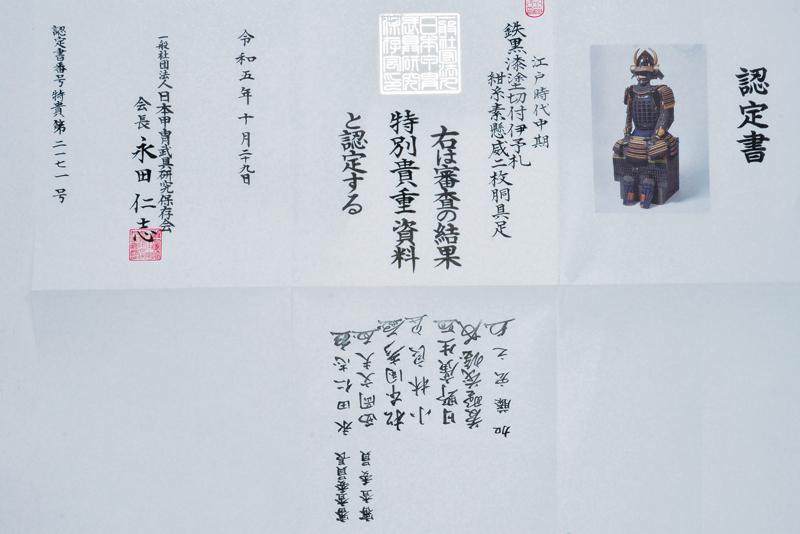 認定書
江戸時代中期
鉄黒漆塗切付伊予札
紺糸素懸威二枚胴具足
右は審査の結果
特別貴重資料
と認定する
令和五年十月二十九日
一般社団法人日本甲冑武具研究保存会
会長 永田仁志
認定書番号特貴第二一七一号
審査委員長 永田仁志
審査委員 西岡文夫
小林
加藤宏之